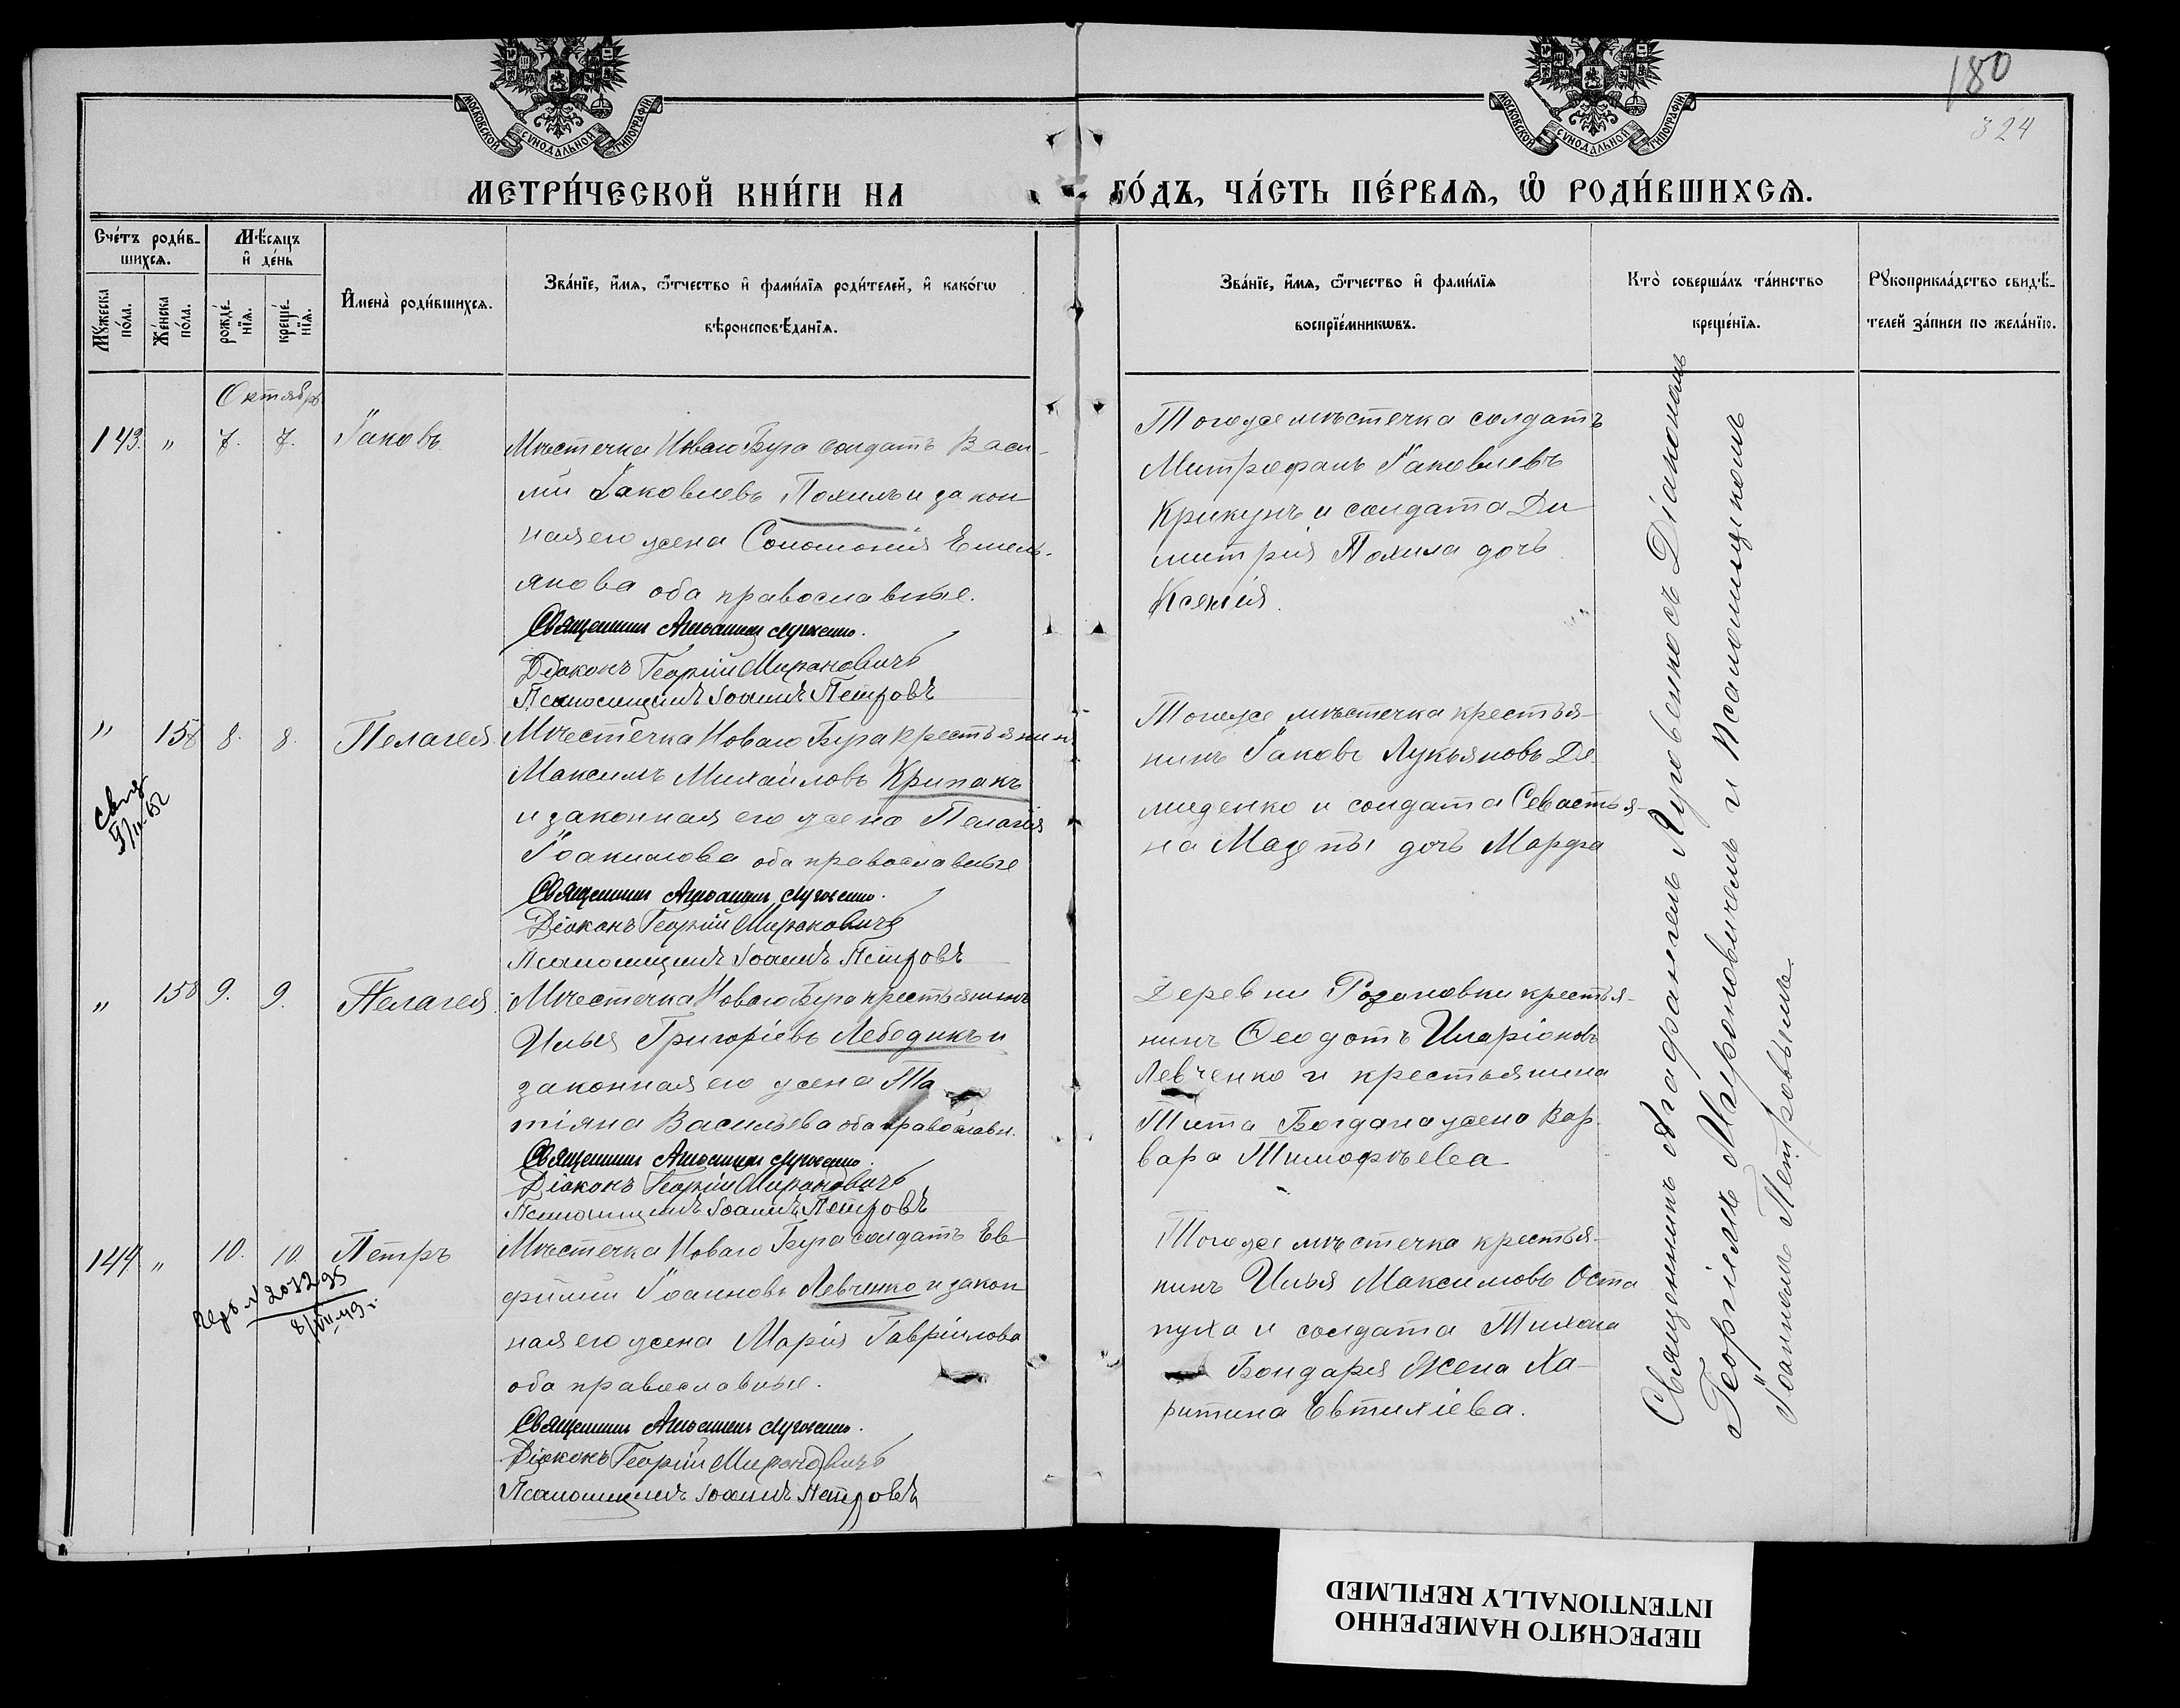 180
324
МОСКОВСКОЙ СѴНОДАЛЬНОЙ ТИПОГРАФІИ
МОСКОВСКОЙ СѴНОДАЛЬНОЙ ТИПОГРАФІИ
МЕТРИ́ЧЕСКОЙ КНИ́ГИ НА ГО́ДЪ, ЧА́СТЬ ПЕ́РВАѦ, Ѽ РОДИ́ВШИХСѦ.
Сче́тъ роди́в-
шихсѧ.
Мꙋжеска по́ла.
Же́нска по́ла.
Мѣ́сяцъ и҆ де́нь
рожде́-
нїѧ.
креще́-
нїѧ.
И҆мена̀ роди́вшихсѧ.
Зва́нїе, и҆́мѧ, ѻ҆́тчество и҆ фами́лїѧ роди́телей, и҆ како́гѡ
вѣроисповѣ́данїѧ.
Зва́нїе, и҆́мѧ, ѻ҆́тчество и҆ фами́лїѧ
воспрїе́мникѡвъ.
Кто̀ соверша́лъ та́инство
креще́нїѧ.
Рꙋкоприкла́дство свидѣ́-
телей за́писи по жела́нїю.
Октябрь
143. " 7. 7. Іаковъ
Мѣстечка Новаго Буга солдатъ Васи-
лій Іаковлевъ Похилъ и закон
ная его жена Соломонія Емель-
янова оба православные.
Священникъ Агафангелъ Луговенко.
Діаконъ Георгій Мироновичъ
Псаломщикъ Іоаннъ Петровъ
Тогоже мѣстечка солдатъ
Митрофанъ Іаковлевъ
Крикунъ и солдата Ди
митрія Похила дочь
Ксенія.
" 158 8. 8. Пелагея
Мѣстечка Новаго Буга крестьянинъ
Максимъ Михайловъ Крипакъ
и законная его жена Пелагія
Іоакимова оба православные
Священникъ Агафангелъ Луговенко.
Діаконъ Георгій Мироновичъ
Псаломщикъ Іоаннъ Петровъ
Тогоже мѣстечка крестья-
нинъ Іаковъ Лукьяновъ Де
миденко и солдата Севастья-
на Мазепы дочь Марфа
" 158 9. 9. Пелагея.
Мѣстечка Новаго Буга крестьянинъ
Илья Григоріевъ Лебедикъ и
законная его жена Та
тіяна Васильева оба православн.
Священникъ Агафангелъ Луговенко.
Діаконъ Георгій Мироновичъ
Псаломщикъ Іоаннъ Петровъ
Деревни Розановки крестья-
нинъ Ѳеодотъ Иларіоновъ
Левченко и крестьянина
Тита Богдана жена Вар
вара Тимофѣева
144. " 10. 10. Петръ
Мѣстечка Новаго Буга солдатъ Ев
фимій Іоанновъ Левченко и закон
ная его жена Марія Гавріилова
оба православные.
Священникъ Агафангелъ Луговенко.
Діаконъ Георгій Мироновичъ
Псаломщикъ Іоаннъ Петровъ
Тогоже мѣстечка крестья-
нинъ Илья Максимовъ Оста
пуха и солдата Тихона
Бондаря Жена Ха-
ритина Евтихіева.
Священникъ Агафангелъ Луговенко съ Діакономъ
Георгіемъ Мироновичемъ и Псаломщикомъ
Іоанномъ Петровымъ.
ПЕРЕСНЯТО НАМЕРЕННО
INTENTIONALLY REFILMED